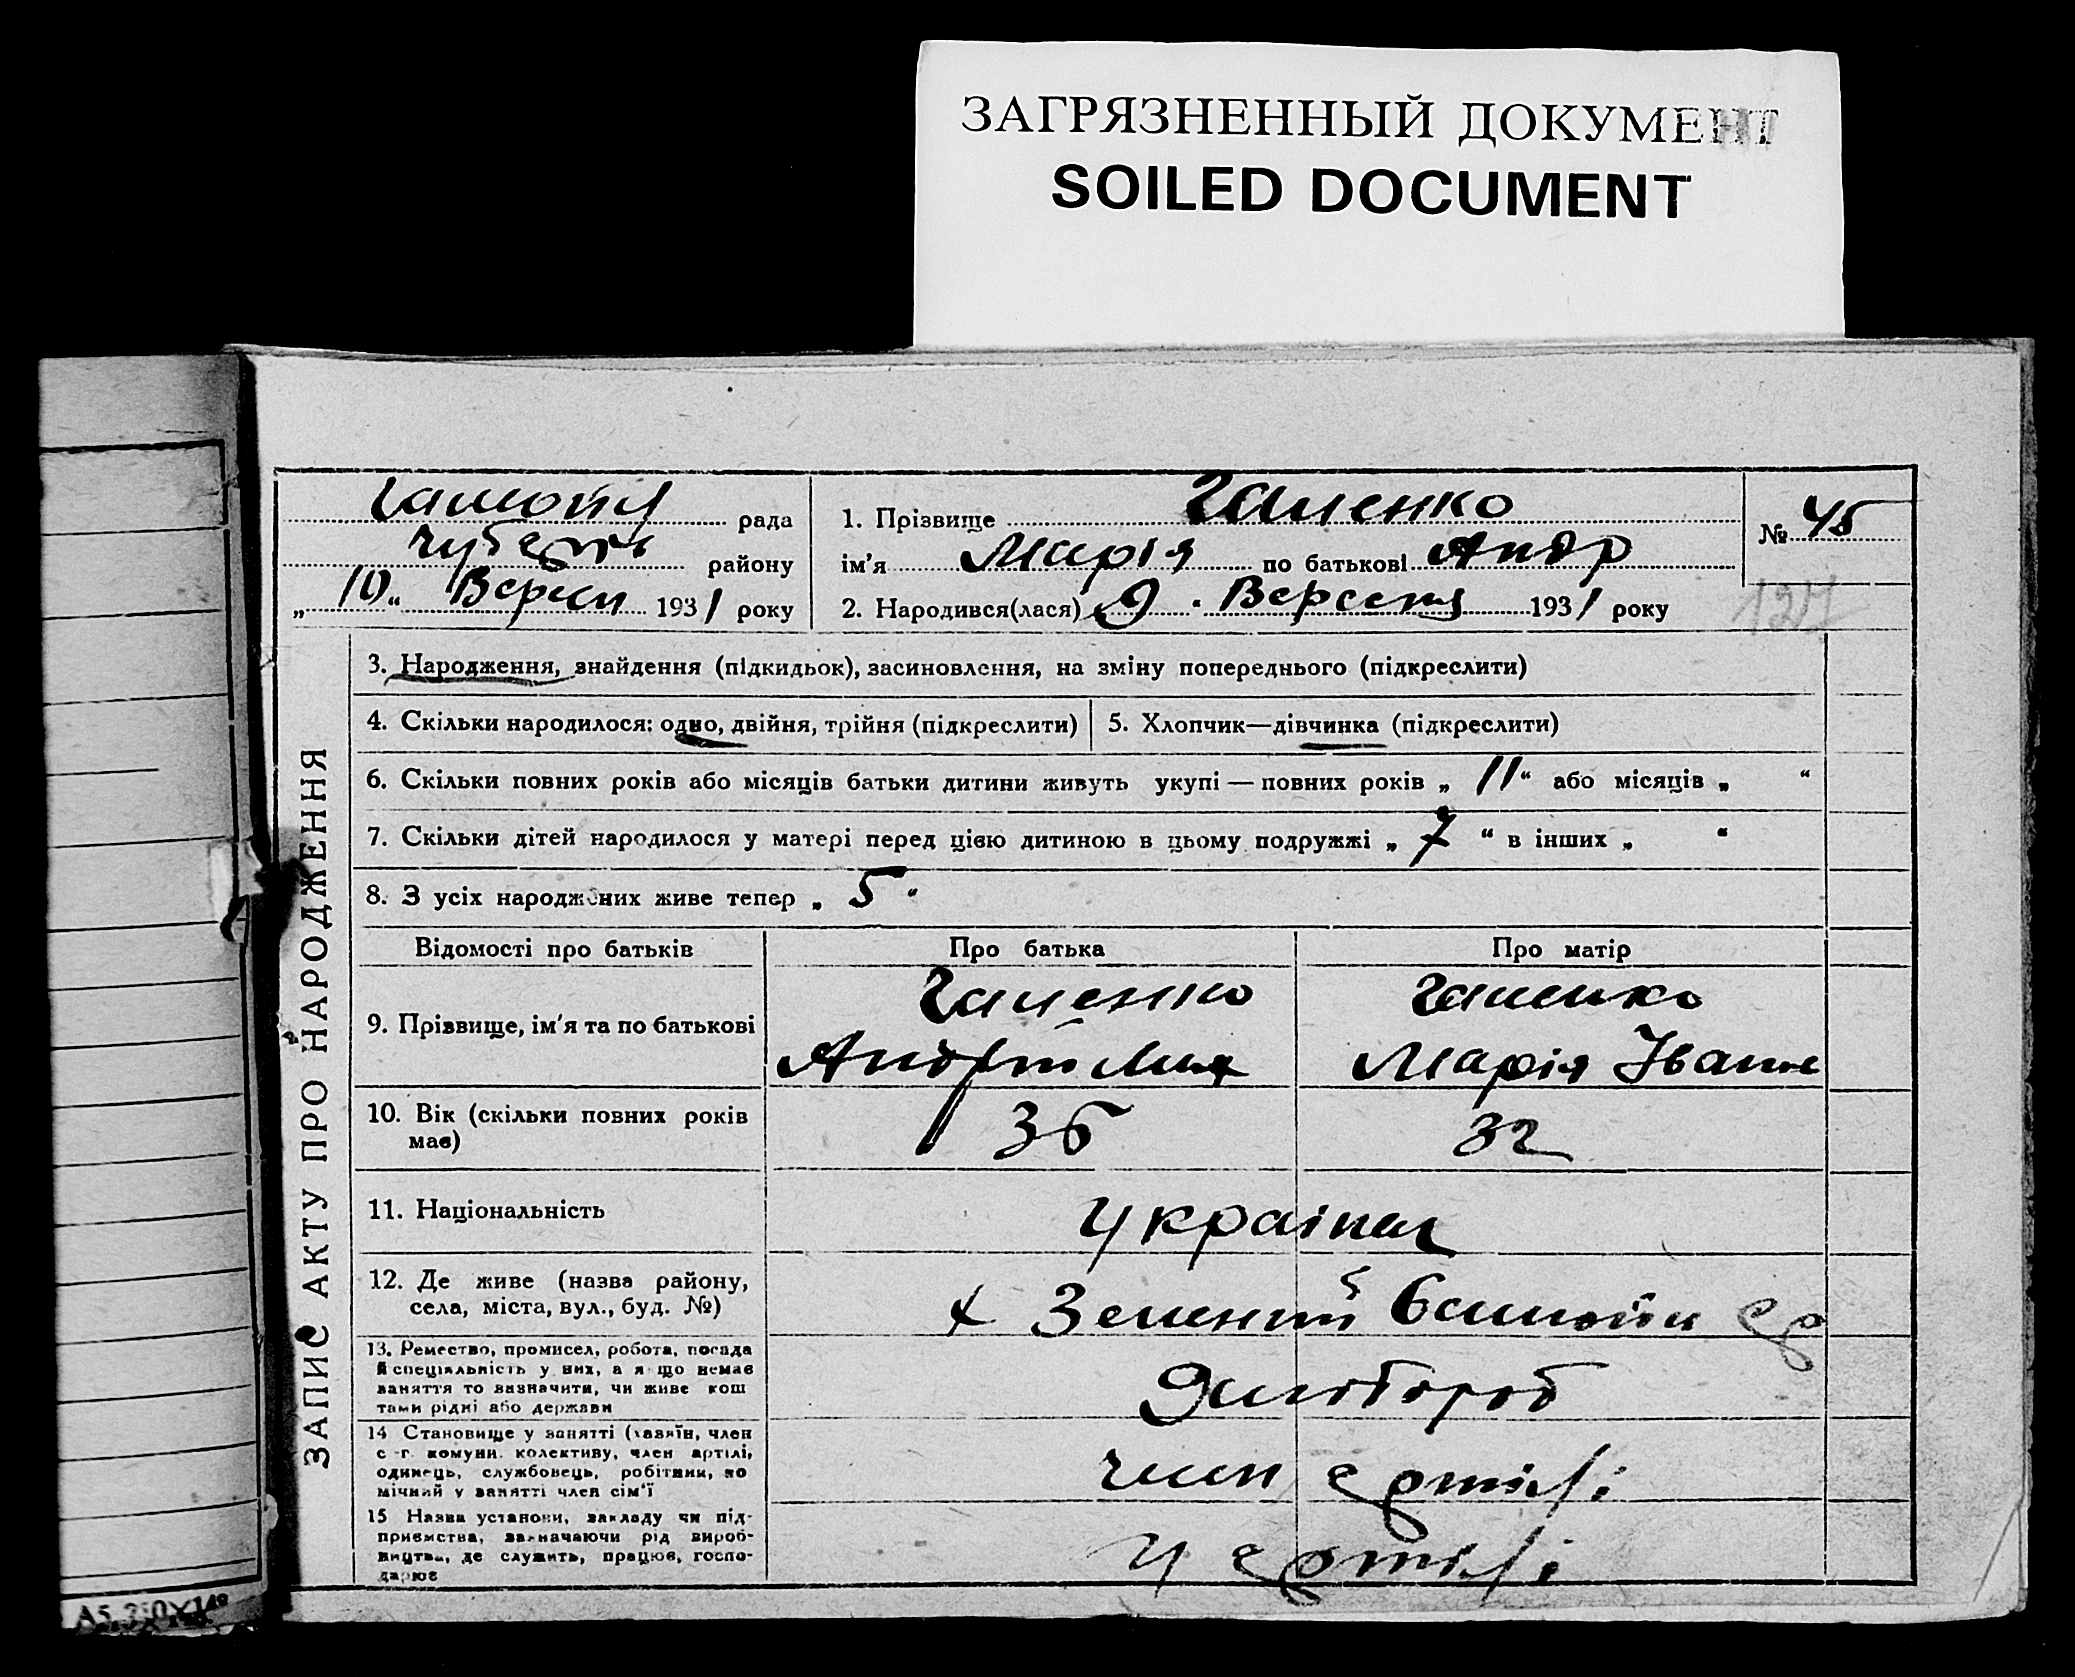 ЗАГРЯЗНЕННЫЙ ДОКУМЕНТ
SOILED DOCUMENT
рада
району
„10“ Вересн 1931 року
1. Прізвище Галенко
ім'я Марія по батькові Андр
2. Народився(лася) 9. Вересня 1931 року
№ 45
127
ЗАПИС АКТУ ПРО НАРОДЖЕННЯ
3. Народження, знайдення (підкидьок), засиновлення, на зміну попереднього (підкреслити)
4. Скільки народилося: одно, двійня, трійня (підкреслити)
5. Хлопчик—дівчинка (підкреслити)
6. Скільки повних років або місяців батьки дитини живуть укупі — повних років „ 11 “ або місяців „ “
7. Скільки дітей народилося у матері перед цією дитиною в цьому подружжі „ 7 “ в інших „ “
8. З усіх народжених живе тепер „ 5 “
Відомості про батьків
Про батька
Про матір
9. Прізвище, ім'я та по батькові
Галенко
Галенко
Марія Іван
10. Вік (скільки повних років
має)
36
32
11. Національність
україн
12. Де живе (назва району,
села, міста, вул., буд. №)
х Зелений
13. Ремество, промисел, робота, посада
й спеціяльність у них, а якщо немає
заняття то визначити, чи живе кош
тами рідні або держави
хлібороб
14 Становище у занятті (хазяїн, член
с.-г. комуни. колективу, член артілі,
одинець, службовець, робітник, по
мічний у занятті член сім'ї
член артілі
15 Назва установи, закладу чи під-
приємства, зазначаючи рід вироб-
ництва, де служить, працює, госпо-
дарює
у артілі